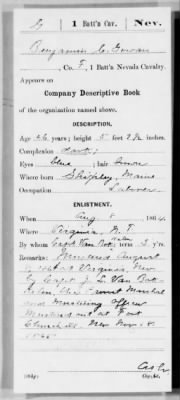 G | 1 Batt'n Cav. | Nev.
Benjamin C. Gowan
, Co. F, 1 Batt'n Nevada Cavalry.
Appears on
Company Descriptive Book
of the organization named above.
DESCRIPTION.
Age 26 years; height 5 feet inches.
Complexion dark
Eyes blue; hair brown
Where born Maine
Occupation Laborer
ENLISTMENT.
When Aug 8, 1864
Where Virginia, N.T.
By whom Capt Van Bok; term 3 y'rs.
Remarks: Mustered August
1864 at Virginia, Nev
by Capt J. L. Van Bok
kelen, Provost Marshal
and Mustering Officer
Mustered out at Fort
Churchill Nev Nov 18
1865
Copyist.